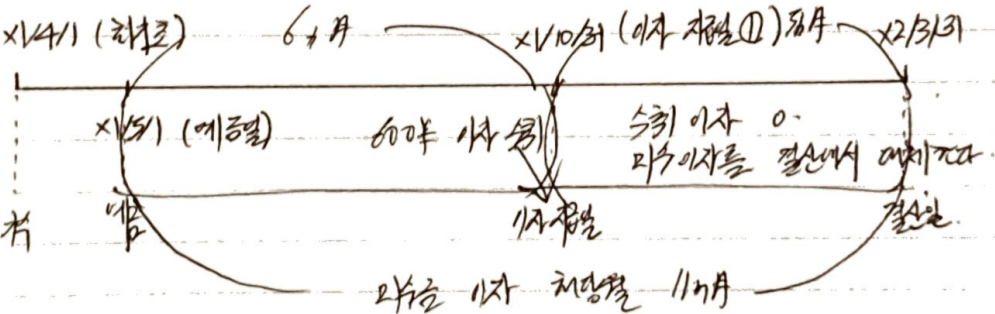 x1/4/1 (최초) 6ヶ月 x1/10/31 (이자 지급일①) 5ヶ月 x2/3/31
x1/5/1 (예금일) 600￥ 이자 수취 수취 이자 0.
미수이자를 결산에서
예금 이자지급일 결산일.
미수금 이자 해당월 11ヶ月